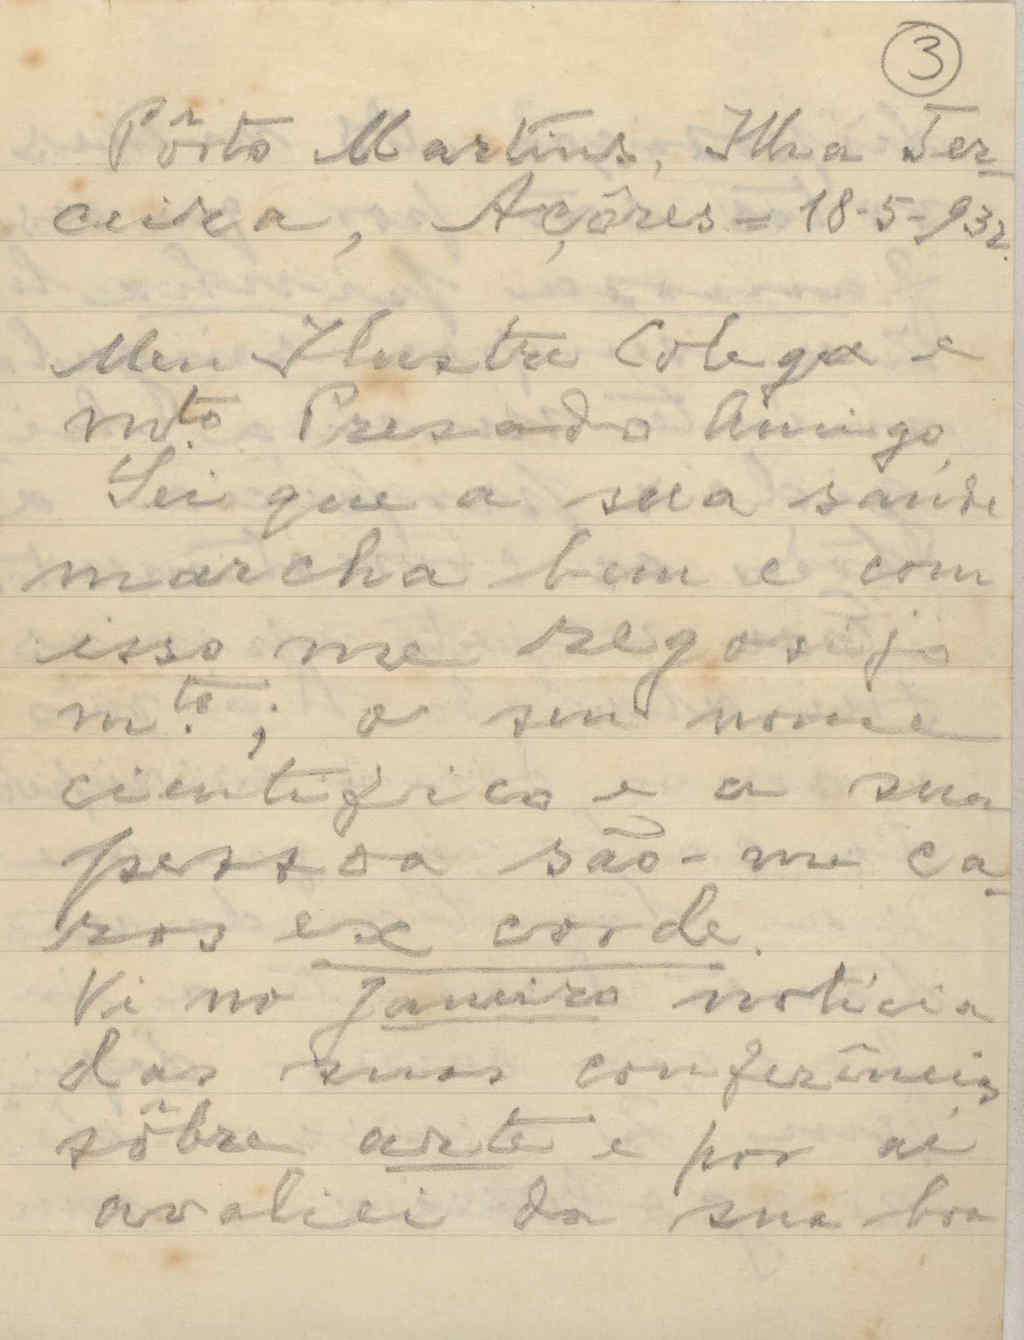 3
Pôrto Martins, Ilha Ter-
ceira, Açôres = 18-5-932.
Meu Ilustre Colega e
m.to Presado Amigo,
Sei que a sua saúde
marcha bem e com
isso me regosijo
m.to; o seu nome
cientifico e a sua
pessoa são-me ca-
ros ex corde.
Vi no Janeiro notícia
das suas conferências
sôbre arte e por aí
avaliei da sua boa